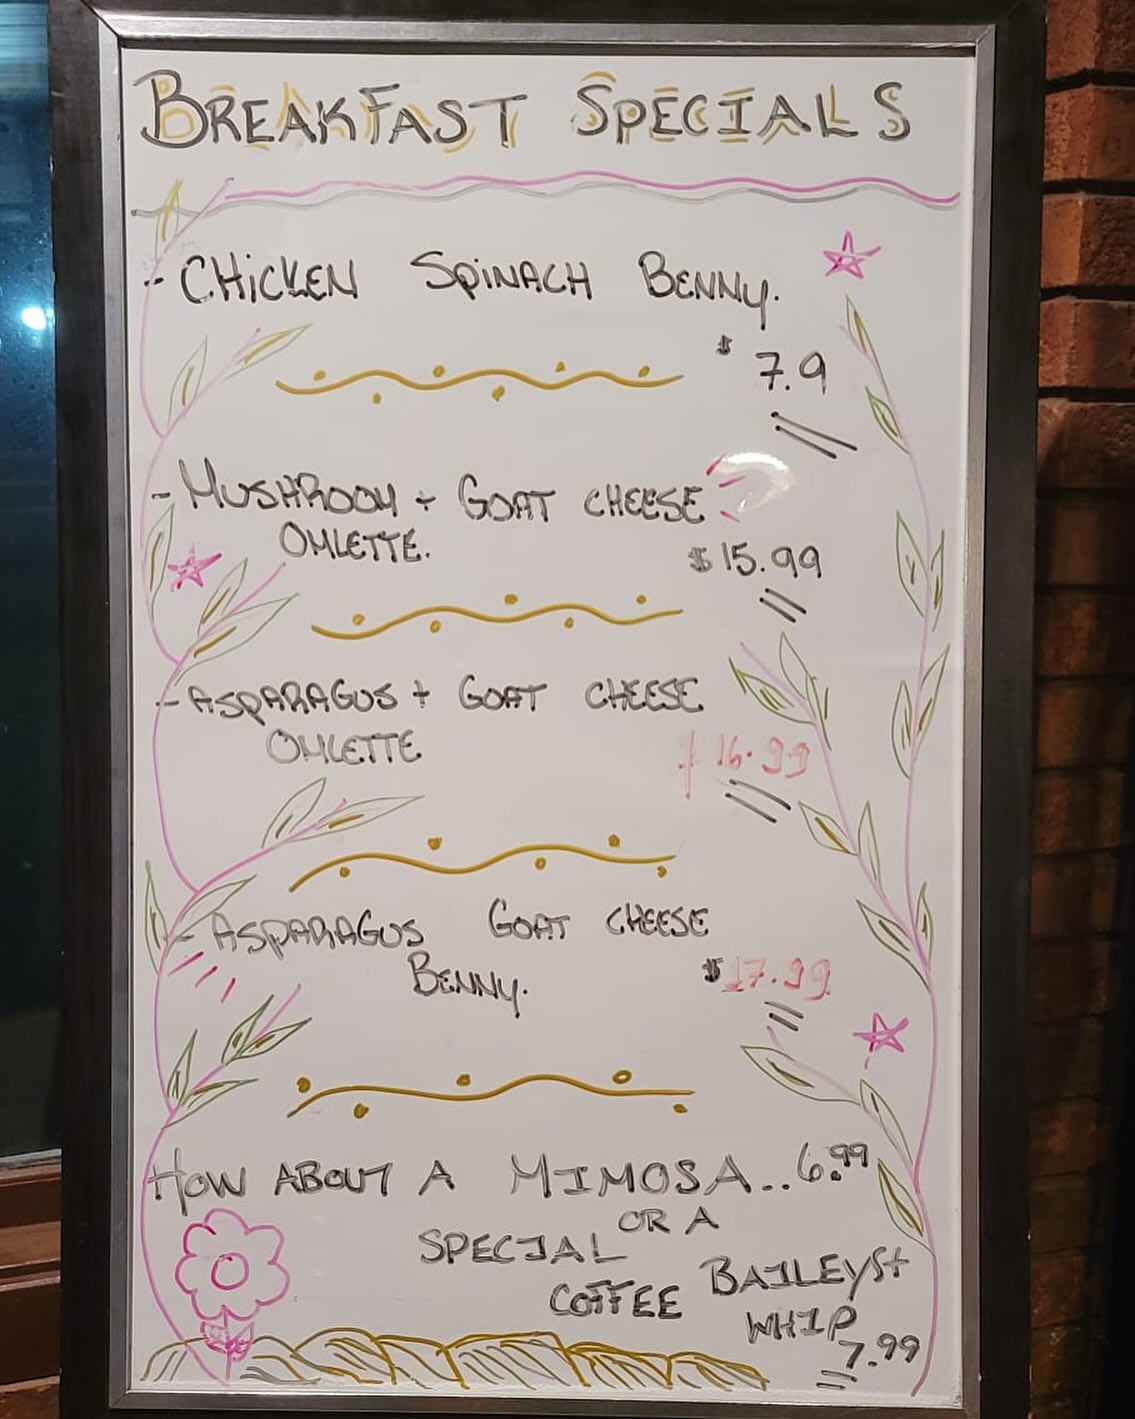 BREAKFAST SPECIALS
- CHICKEN SPINACH BENNY.
$ 7.9
- MUSHROOM + GOAT CHEESE
OMLETTE.
$ 15.99
- ASPARAGUS + GOAT CHEESE
OMLETTE
$ 16.99
- ASPARAGUS GOAT CHEESE
BENNY.
$ 17.99
HOW ABOUT A MIMOSA..6.99
OR A
SPECIAL
COFFEE BAILEYS+
WHIP
7.99